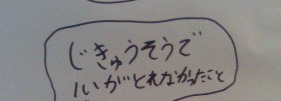 じきゅうそうで
いいがとれなかったこと